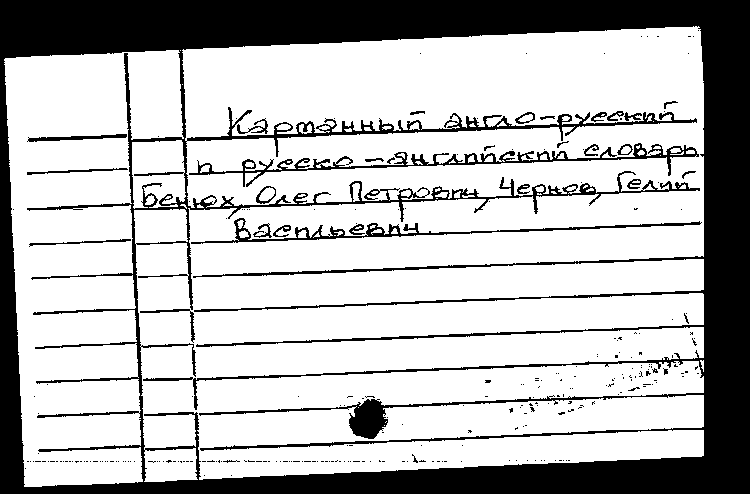 Карманный англо-русский
и русско-английский словарь
Бенюх, Олег Петрович, Чернов, Гелий
Васильевич.